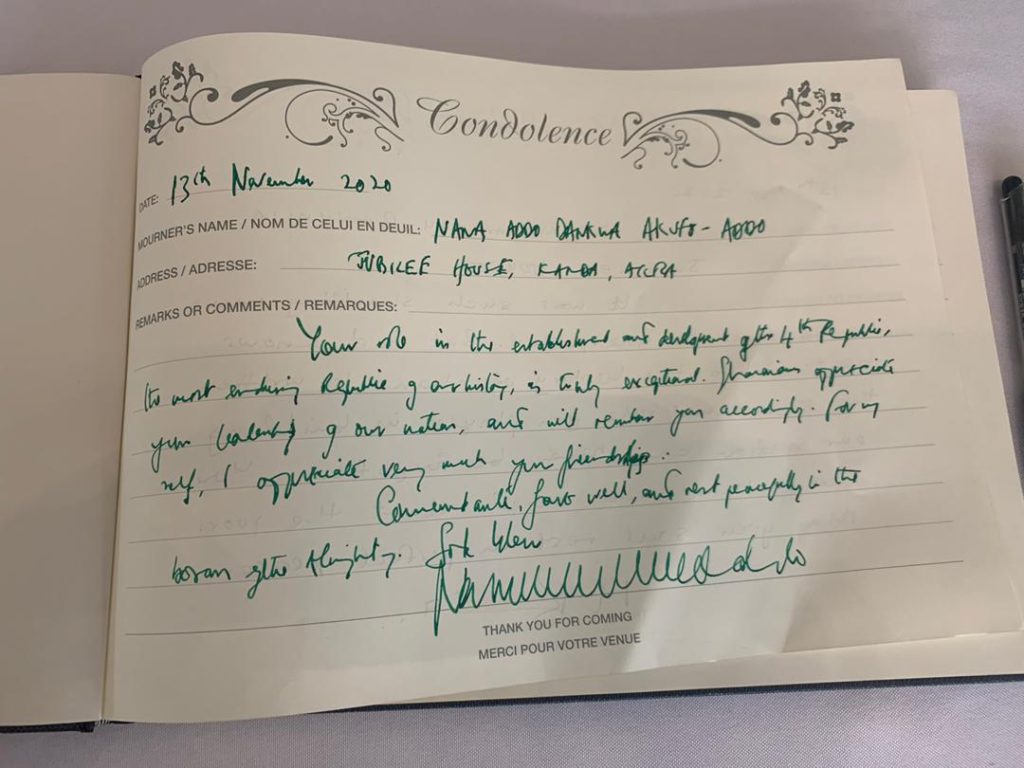 Condolence
DATE: 13th November 2020
MOURNER'S NAME / NOM DE CELUI EN DEUIL: NANA ADDO DANKWA AKUFO-ADDO
ADDRESS / ADRESSE: JUBILEE HOUSE, KANDA, ACCRA
REMARKS OR COMMENTS / REMARQUES:
Your role in the establishment and development of the 4th Republic,
the most enduring Republic of our history, is truly exceptional. Ghanaians appreciate
your leadership of our nation, and will remember you accordingly. For my
self, I appreciate very much your friendship.
fare well, and rest peacefully in the
bosom of the Almighty.
THANK YOU FOR COMING
MERCI POUR VOTRE VENUE